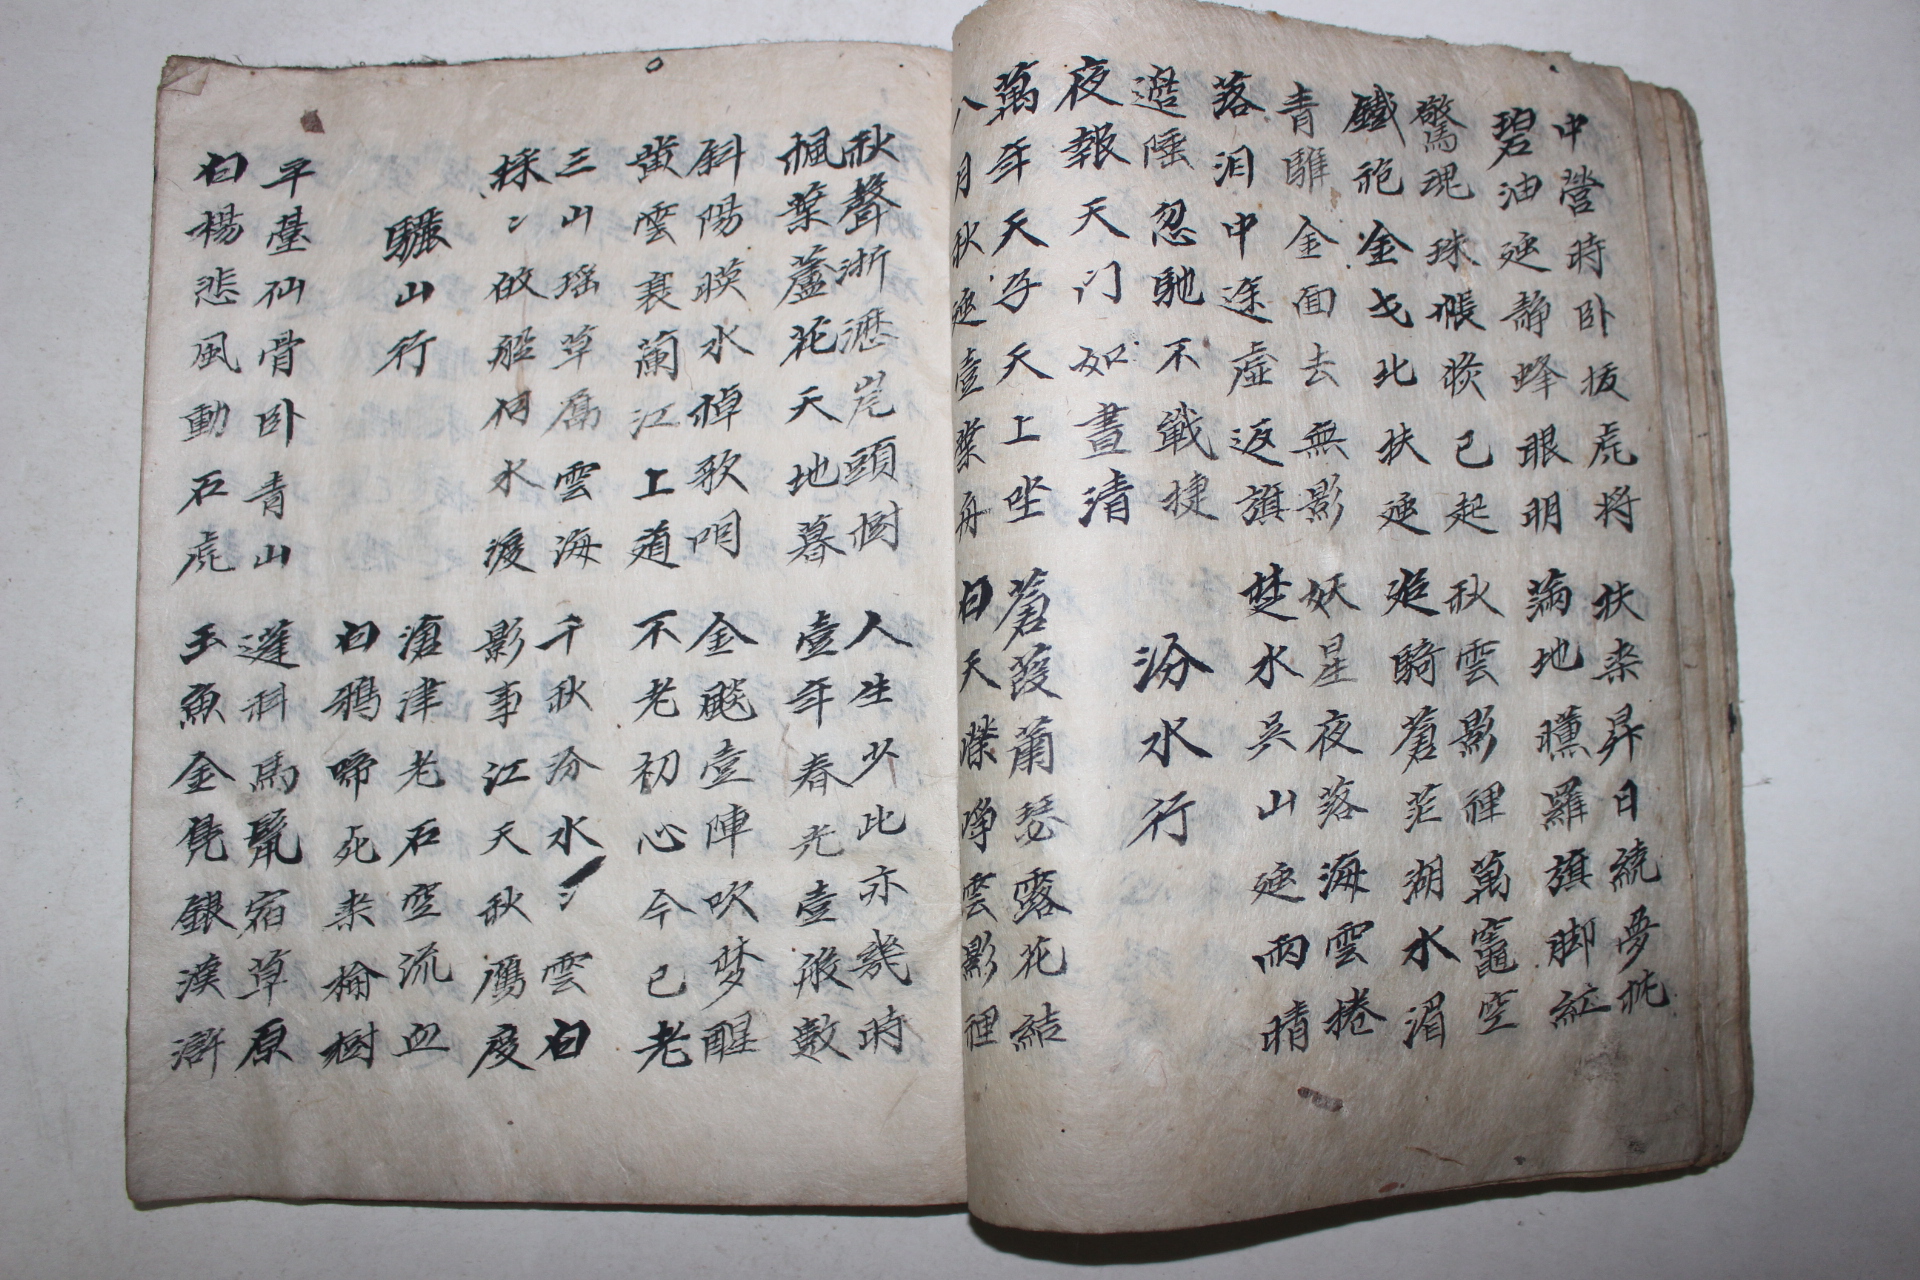 中營時卧拔虎將 扶桒昇日繞夢牀
碧油迎静蜂眼明 滿地曛羅旗脚紅
驚魂珠帳淡已起 秋雲影裡萬竈空
鐵袍金戈北扶迎 追騎蒼茫湖水湄
青騅金面去無影 妖星夜落海雲捲
落泪中途虛返旗 楚水吳山迎雨晴
邊陲忽馳不戰捷
夜報天天门如晝清
汾水行
萬年天子天上坐 蒼葭蕭瑟露花結
八月秋迎壹葉舟 白天濼崢雲影裡
秋聲淅瀝岸頭樹 人生少此亦幾時
楓葉蘆花天地暮 壹年春光壹般數
斜陽暎水棹歌咽 金飈壹陣吹梦醒
黃雲衰蘭江上道 不老初心今已老
三山瑶草属雲海 千秋汾水〻雲白
採〻故船何水渡 影事江天秋鴈度
驪山行
滄津老石空流血
白鴉啼死来檜樹
平臺仙骨卧青山 蓬科馬鬣宿草原
白楊悲風動石虎 玉魚金凫銀漢滸